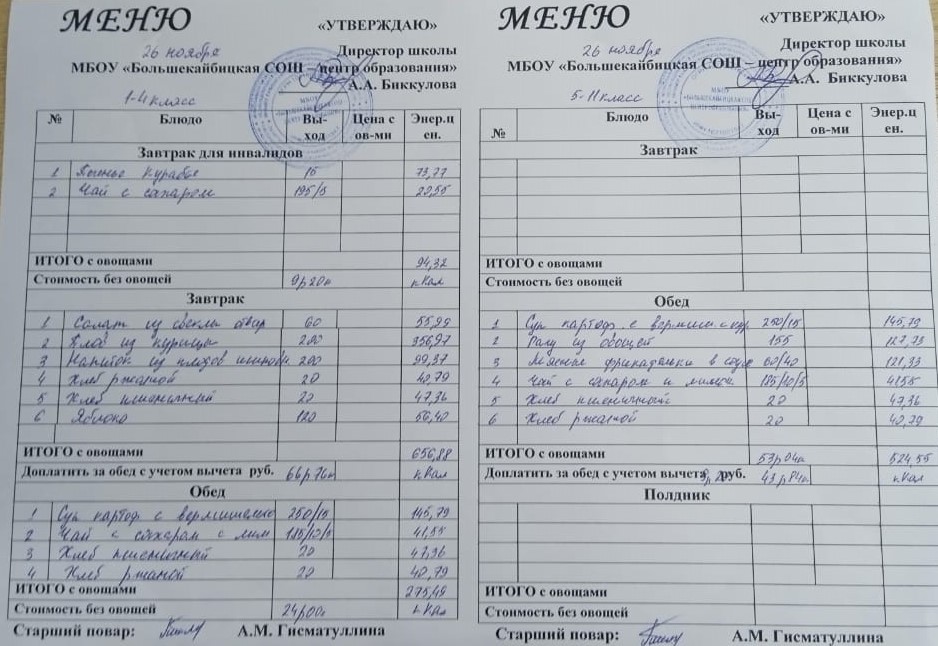 МЕНЮ
«УТВЕРЖДАЮ»
26 ноября
Директор школы
МБОУ «Большекайбицкая СОШ – центр образования»
А.А. Биккулова
1-4 класс
№ Блюдо Вы-ход Цена с ов-ми Энер.цен.
Завтрак для инвалидов
1 Печенье Курабье 15 73,77
2 Чай с сахаром 195/5 20,55
ИТОГО с овощами 94,32
Стоимость без овощей 9р20к кКал
Завтрак
1 Салат из свеклы отвар 60 55,99
2 Плов из курицы 200 356,97
3 Напиток из плодов шиповн 200 99,37
4 Хлеб ржаной 20 40,79
5 Хлеб пшеничный 20 47,36
6 Яблоко 120 56,40
ИТОГО с овощами 656,88
Доплатить за обед с учетом вычета руб. 66р76к кКал
Обед
1 Суп картоф с вермишелью 250/15 145,79
2 Чай с сахаром с лим 185/10/5 41,55
3 Хлеб пшеничный 20 47,36
4 Хлеб ржаной 20 40,79
ИТОГО с овощами 275,49
Стоимость без овощей 24р00к кКал
Старший повар: А.М. Гисматуллина
МЕНЮ
«УТВЕРЖДАЮ»
26 ноября
Директор школы
МБОУ «Большекайбицкая СОШ – центр образования»
А.А. Биккулова
5-11 класс
№ Блюдо Вы-ход Цена с ов-ми Энер.цен.
Завтрак
ИТОГО с овощами
Стоимость без овощей
Обед
1 Суп картоф. с вермиш. с кур 250/15 145,79
2 Рагу из овощей 155 127,73
3 Мясные фрикадельки в соусе 60/40 121,33
4 Чай с сахаром и лимон 185/10/5 41,55
5 Хлеб пшеничный 20 47,36
6 Хлеб ржаной 20 40,79
ИТОГО с овощами 53р04к 524,55
Доплатить за обед с учетом вычета руб. 43р84к кКал
Полдник
ИТОГО с овощами
Стоимость без овощей
Старший повар: А.М. Гисматуллина